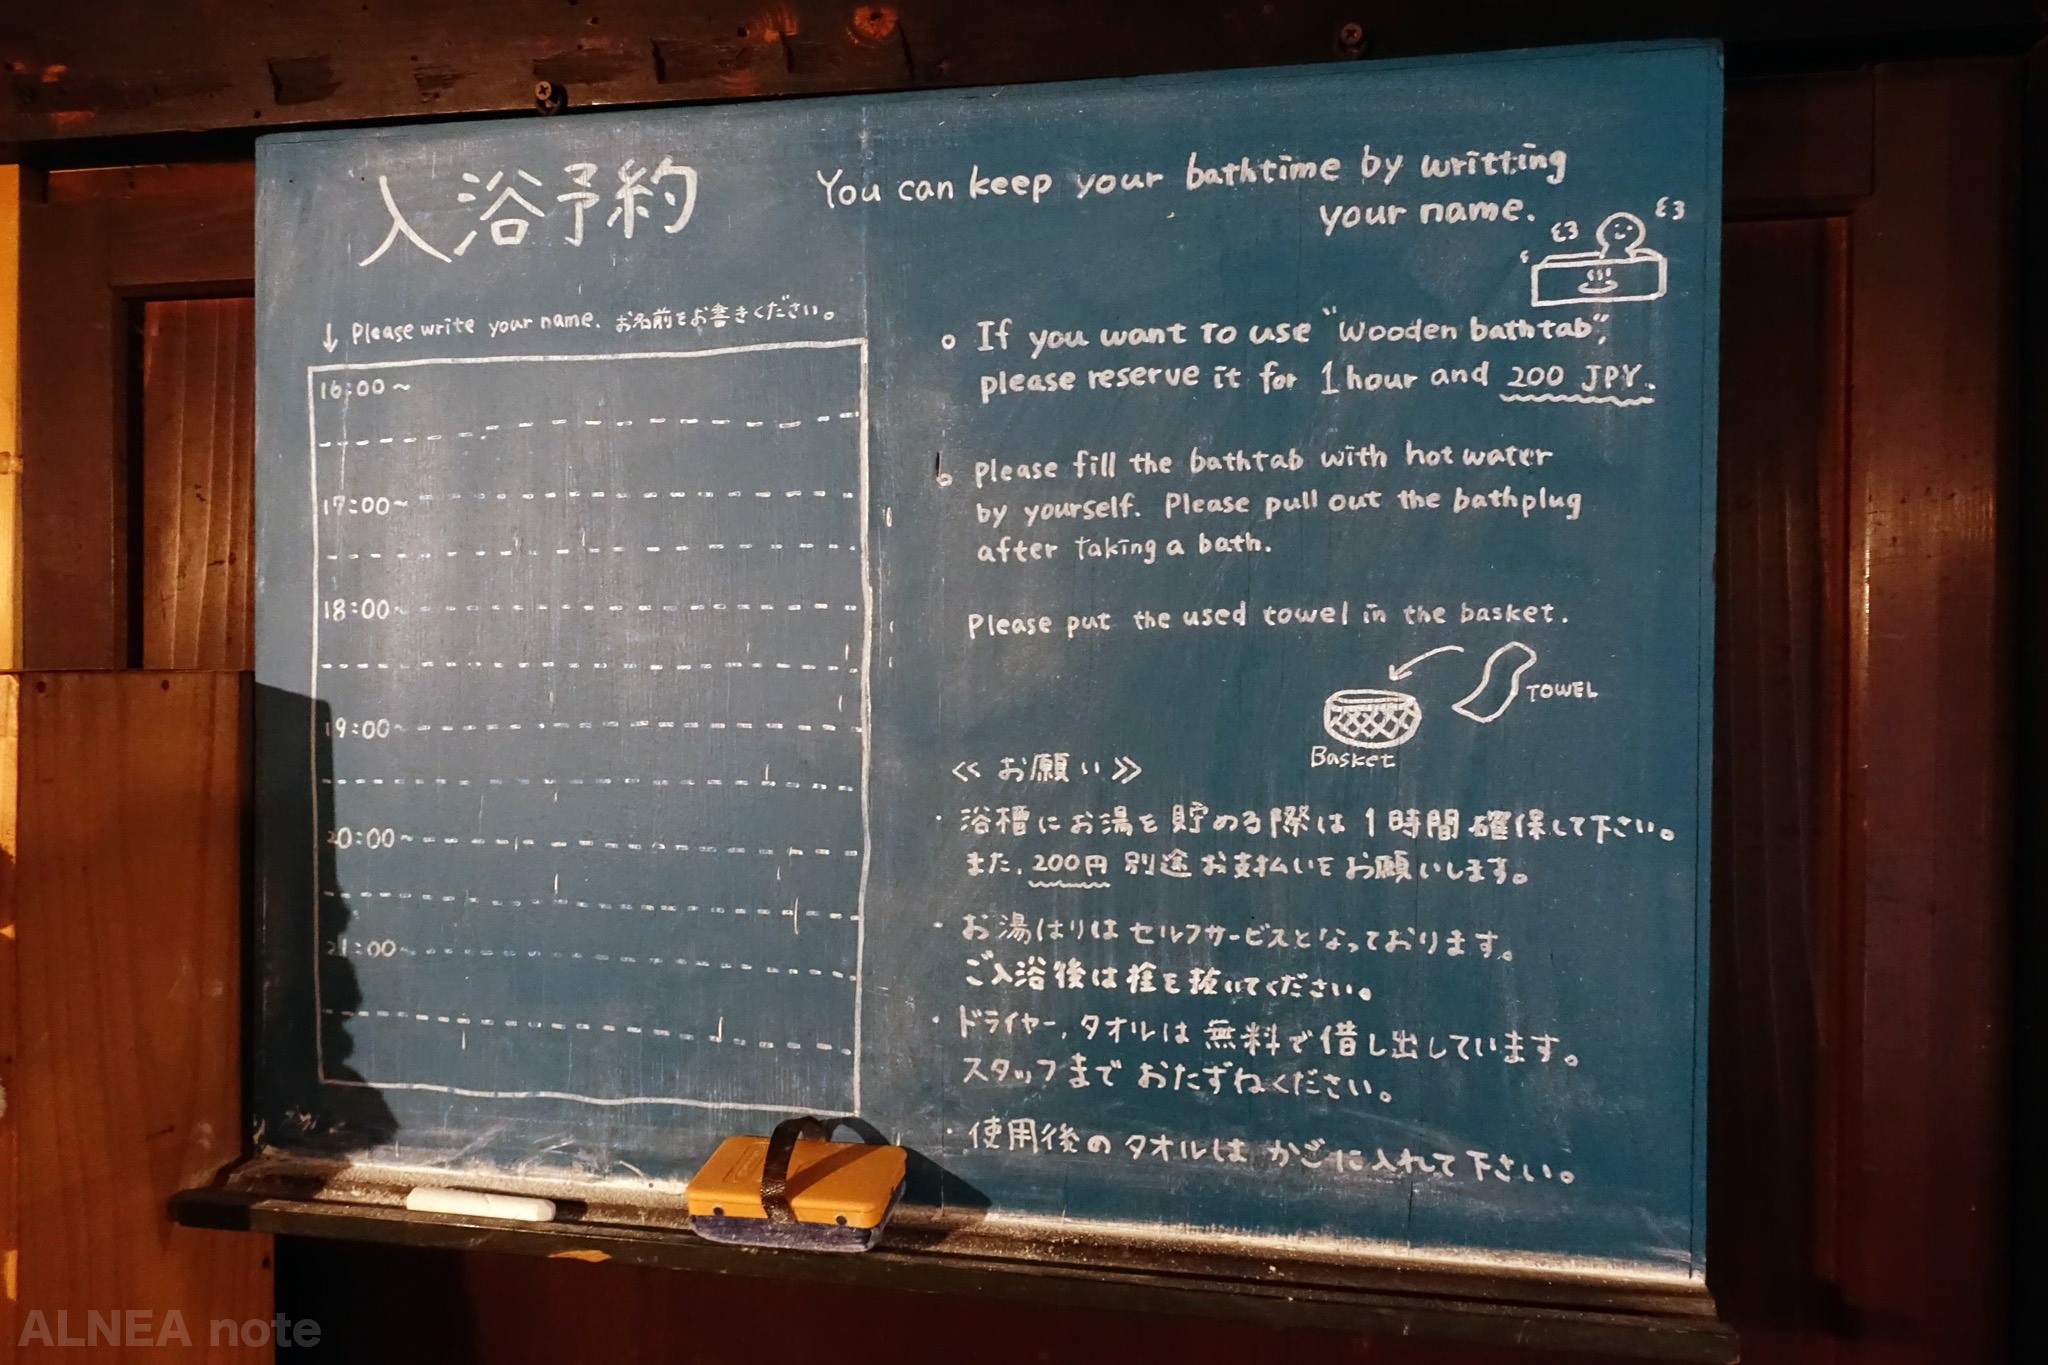 入浴予約
↓ Please write your name. お名前をお書きください。
16:00～
17:00～
18:00～
19:00～
20:00～
21:00～
You can keep your bathtime by writting
your name.
If you want to use "Wooden bathtab",
please reserve it for 1 hour and 200 JPY.
Please fill the bathtab with hot water
by yourself. Please pull out the bathplug
after taking a bath.
Please put the used towel in the basket.
TOWEL
Basket
≪お願い≫
・浴槽にお湯を貯める際は1時間確保して下さい。
また、200円別途お支払いをお願いします。
・お湯はりはセルフサービスとなっております。
ご入浴後は栓を抜いてください。
・ドライヤー、タオルは無料で借し出しています。
スタッフまでおたずねください。
・使用後のタオルはかごに入れて下さい。
ALNEA note